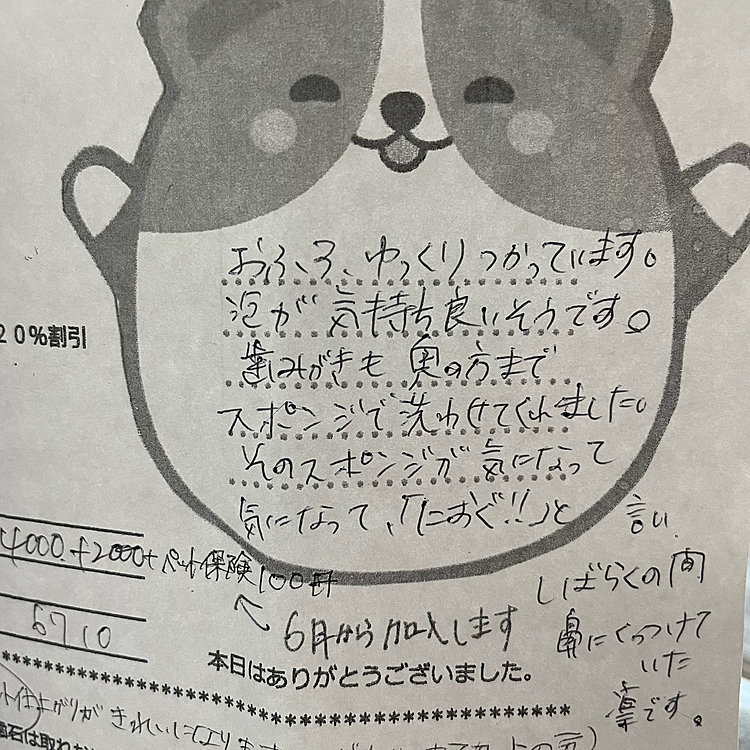 おふろ、ゆっくりつかっています。
泡が気持ち良いそうです。
20%割引
歯みがきも奥の方まで
スポンジで洗わせてくれました。
そのスポンジが気になって
気になって、「におぐ!!」と言い
しばらくの間
鼻にくっつけて
いた
凛です。
4000+2000+ペット保険100円
6710
6月から加入します
本日はありがとうございました。
仕上がりがきれいに
石は取れ